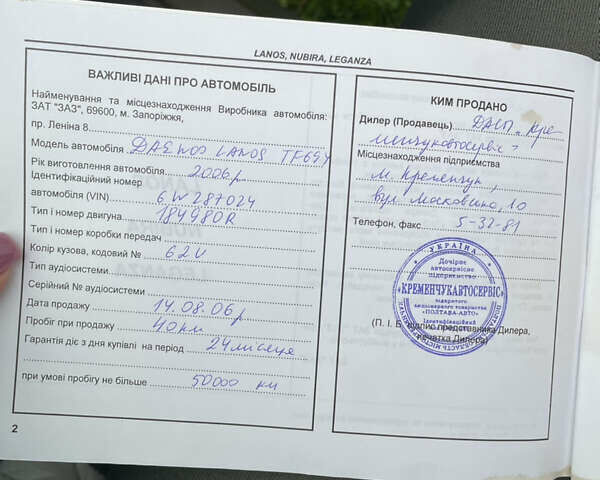 LANOS, NUBIRA, LEGANZA
ВАЖЛИВІ ДАНІ ПРО АВТОМОБІЛЬ
Найменування та місцезнаходження Виробника автомобіля:
ЗАТ "ЗАЗ", 69600, м. Запоріжжя,
пр. Леніна 8
Модель автомобіля DAEWOO LANOS TF69Y
Рік виготовлення автомобіля 2006р
Ідентифікаційний номер
автомобіля (VIN) 6W287024
Тип і номер двигуна 184980R
Тип і номер коробки передач
Колір кузова, кодовий № 62U
Тип аудіосистеми
Серійний № аудіосистеми
Дата продажу 14.08.06р
Пробіг при продажу 40км
Гарантія діє з дня купівлі на період 24 місяця
при умові пробігу не більше 50000 км
2
КИМ ПРОДАНО
Дилер (Продавець) ДАСП "Кре
менчукавтосервіс"
Місцезнаходження підприємства
м. Кременчук,
вул. Маковського, 10
Телефон, факс 5-32-81
УКРАЇНА
Дочірнє
автосервісне
підприємство
«КРЕМЕНЧУКАВТОСЕРВІС»
відкритого
акціонерного товариства
«ПОЛТАВА-АВТО»
Ідентифікаційний
(П. І. Б. підпис представника Дилера,
печатка Дилера)